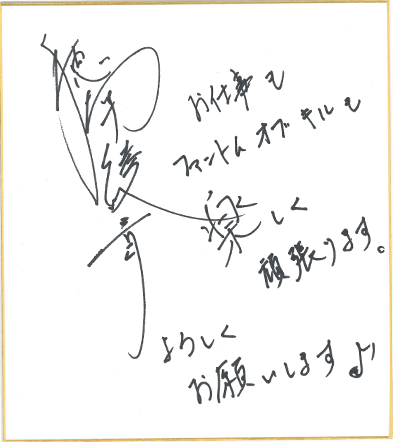 お仕事も
ファントム オブ キルも
楽しく
頑張ります。
よろしく
お願いします♪